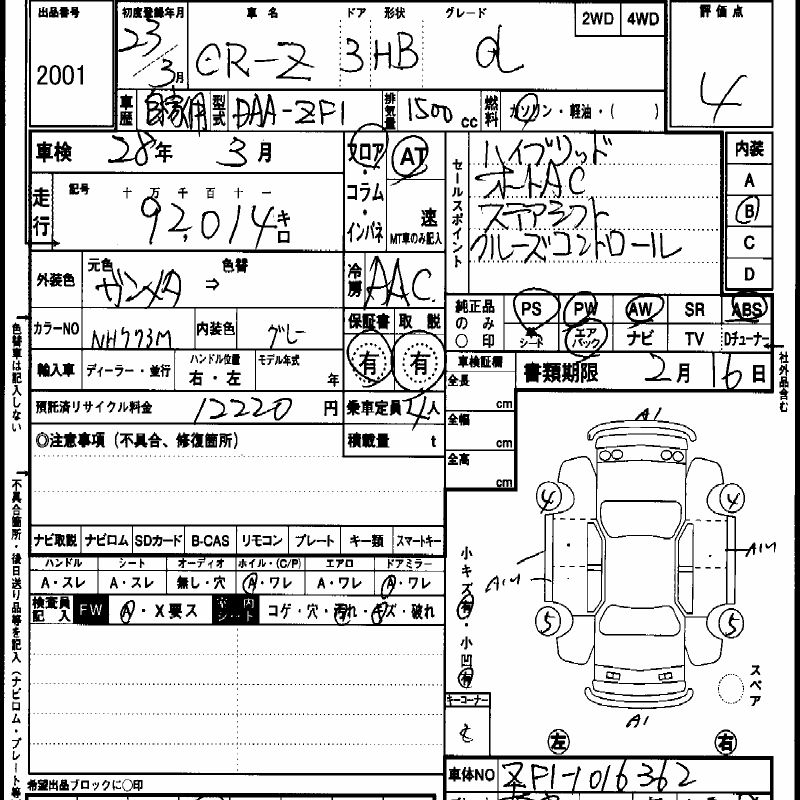 出品番号 2001
初度登録年月 23/3月
車名 CR-Z
ドア 3 形状 HB
グレード α
2WD 4WD
評価点 4
車歴 自家用 型式 DAA-ZF1 排気量 1500cc 燃料 ガソリン・軽油・( )
車検 28年 3月
フロア・コラム・インパネ
AT
速
MT車のみ記入
セールスポイント
ハイブリッド
オートAC
ステアシフト
クルーズコントロール
内装
A
B
C
D
走行 記号 十万千百十一
92,014キロ
外装色 元色 ガンメタ ⇒ 色替
冷房 AAC
カラーNO NH773M 内装色 グレー
保証書 有 取説 有
純正品のみ〇印
PS PW AW SR ABS
シート エアバック ナビ TV Dチューナー
輸入車 ディーラー・並行 ハンドル位置 右・左 モデル年式 年
車検証欄
全長 cm
全幅 cm
全高 cm
書類期限 2月 16日
預託済リサイクル料金 12220円
乗車定員 4人
積載量 t
◎注意事項(不具合、修復箇所)
ナビ取説 ナビロム SDカード B-CAS リモコン プレート キー類 スマートキー
ハンドル シート オーディオ ホイル・(C/P) エアロ ドアミラー
A・スレ A・スレ 無し・穴 A・ワレ A・ワレ A・ワレ
検査員記入 FW A・X要ス 内 コゲ・穴・汚れ・キズ・破れ
色替車は記入しない
不具合箇所・後日送り品等を記入(ナビロム・プレート等
社外品含む
A1
4 4
A1M
A1M
5 5
A1
小キズ有・小凹有
スペア
キーコーナー
左 右
希望出品ブロックに〇印
車体NO ZF1-1016362